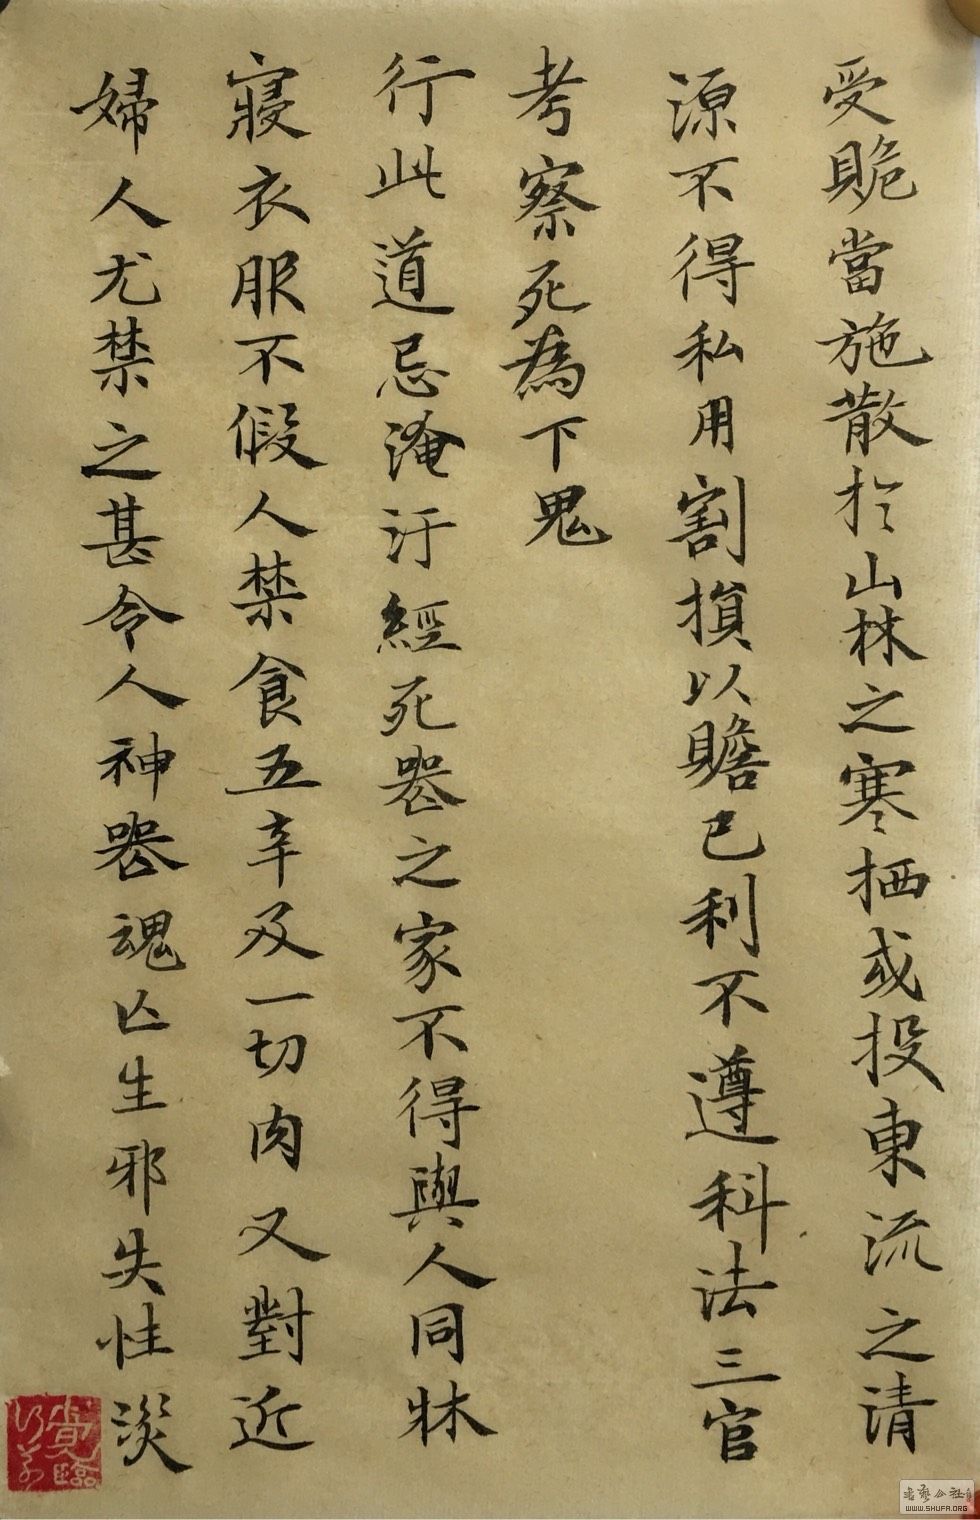 受賄當施散於山林之寒栖或投東流之清
源不得私用割損以贍己利不遵科法三官
考察死為下鬼
行此道忌淹汙經死喪之家不得與人同牀
寢衣服不假人禁食五辛及一切肉又對近
婦人尤禁之甚令人神喪魂亡生邪失性災
書藝公社
WWW.SHUFA.ORG